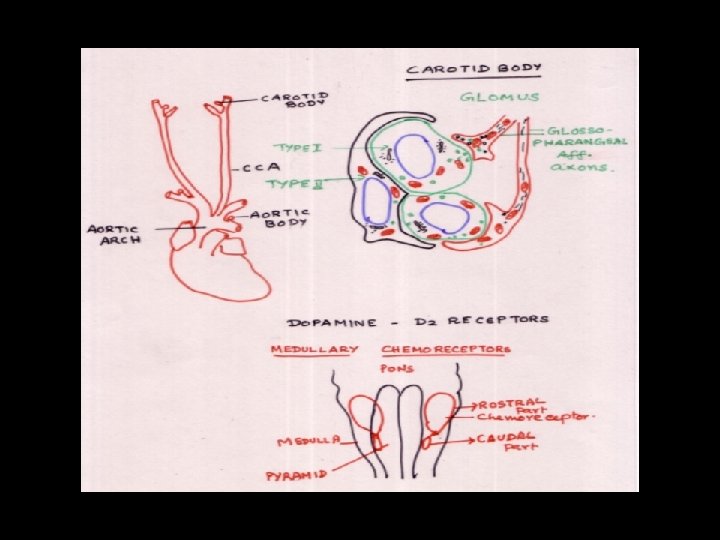 CAROTID BODY
GLOMUS
CAROTID
BODY
TYPE I
GLOSSO-
PHARANGEAL
Aff.
axons.
CCA
TYPE II
AORTIC
BODY
AORTIC
ARCH
DOPAMINE - D2 RECEPTORS
MEDULLARY CHEMORECEPTORS
PONS
ROSTRAL
Part
Chemoreceptor.
MEDULLA
CAUDAL
Part
PYRAMID